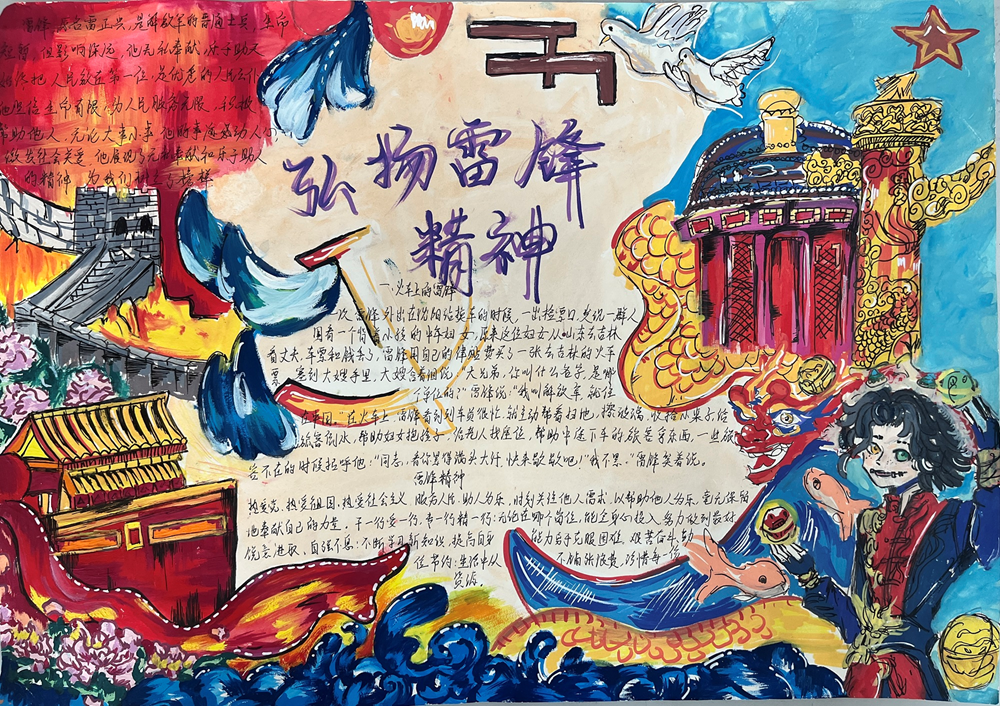 雷锋,原名雷正兴,是解放军的普通士兵,生命
短暂,但影响深远,他无私奉献,乐于助人
始终把人民放在第一位,是优秀的人民公仆
他坚信生命有限,为人民服务无限,积极
帮助他人,无论大事小事,他的事迹感动人心
激发社会关爱,他展现了无私奉献和乐于助人
的精神,为我们树立了榜样
弘扬雷锋
精神
一.火车上的雷锋
一次雷锋外出在沈阳站换车的时候,一出检票口,发现一群人
围着一个背着小孩的中年妇女,原来这位妇女从山东去吉林
看丈夫,车票和钱丢了,雷锋用自己的津贴费买了一张去吉林的火车
票塞到大嫂手里,大嫂含着泪说:"大兄弟,你叫什么名字,是哪
个单位的?"雷锋说:"我叫解放军,就住
在中国。"在火车上,雷锋看到列车员很忙,就主动帮着扫地,擦玻璃,收拾小桌子,给
旅客倒水,帮助妇女抱孩子,给老人找座位,帮助中途下车的旅客拿东西,一些旅
客下在的时候招呼他:"同志,看你累得满头大汗,快来歇歇吧!""我不累。"雷锋笑着说。
雷锋精神
热爱党、热爱祖国、热爱社会主义 服务人民,助人为乐,时刻关注他人需求,以帮助他人为乐,毫无保留
地奉献自己的力量。干一行爱一行,专一行精一行:无论在哪个岗位,能全身心投入,努力做到最好
锐意进取,自强不息:不断学习新知识,提高自身 能力后手克服困难 艰苦奋斗,勤
俭节约:生活中从 不铺张浪费,珍惜每一份
资源。